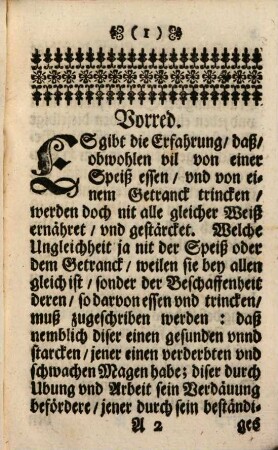 (1)
Vorred.
ES gibt die Erfahrung/ daß/
obwohlen vil von einer
Speiß essen/ vnd von ei-
nem Getranck trincken/
werden doch nit alle gleicher Weiß
ernähret/ vnd gestärcket. Welche
Ungleichheit ja nit der Speiß oder
dem Getranck/ weilen sie bey allen
gleich ist/ sonder der Beschaffenheit
deren/ so darvon essen vnd trincken/
muß zugeschriben werden : daß
nemblich diser einen gesunden vnnd
starcken/ jener einen verderbten vnd
schwachen Magen habe; diser durch
Ubung vnd Arbeit sein Verdäuung
befördere/ jener durch sein beständi-
A 2 ges